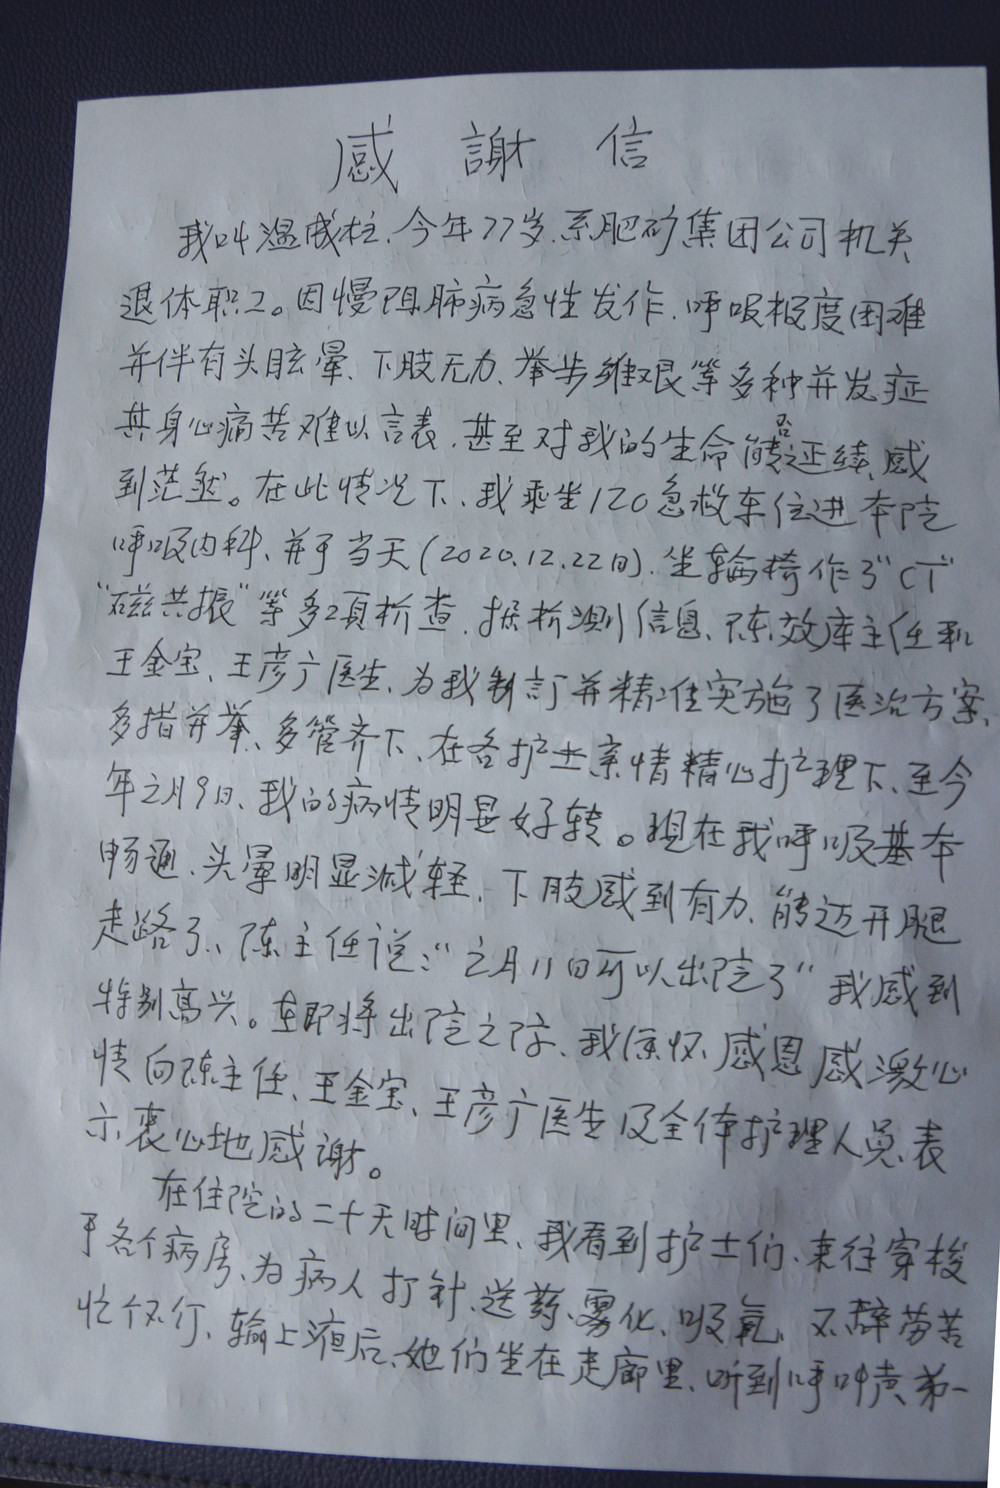 感謝信
我叫温成柱、今年77岁、系肥矿集团公司机关
退休职工。因慢阻肺病急性发作、呼吸极度困难
并伴有头眩晕、下肢无力、举步维艰等多种并发症
其身心痛苦难以言表、甚至对我的生命能否延续、感
到茫然。在此情况下、我乘坐120急救车住进本院
呼吸内科、并于当天(2020.12.22日)、坐轮椅作了"CT"
"磁共振"等多项检查、据检测信息、陈效库主任和
王金宝、王彦广医生、为我制訂并精准实施了医治方案、
多措并举、多管齐下、在各护士亲情精心护理下、至今
年元月9日、我的病情明显好转。现在我呼吸基本
畅通、头晕明显减轻、下肢感到有力、能迈开腿
走路了、陈主任说:"元月11日可以出院了"我感到
特别高兴。在即将出院之际、我倍怀感恩感激心
情向陈主任、王金宝、王彦广医生及全体护理人员、表
示衷心地感谢。
在住院的二十天时间里、我看到护士们、来往穿梭
于各个病房、为病人打针、送药、雾化、吸氧、不辞劳苦
忙个不停、输上液后、她们坐在走廊里、听到呼叫声、第一